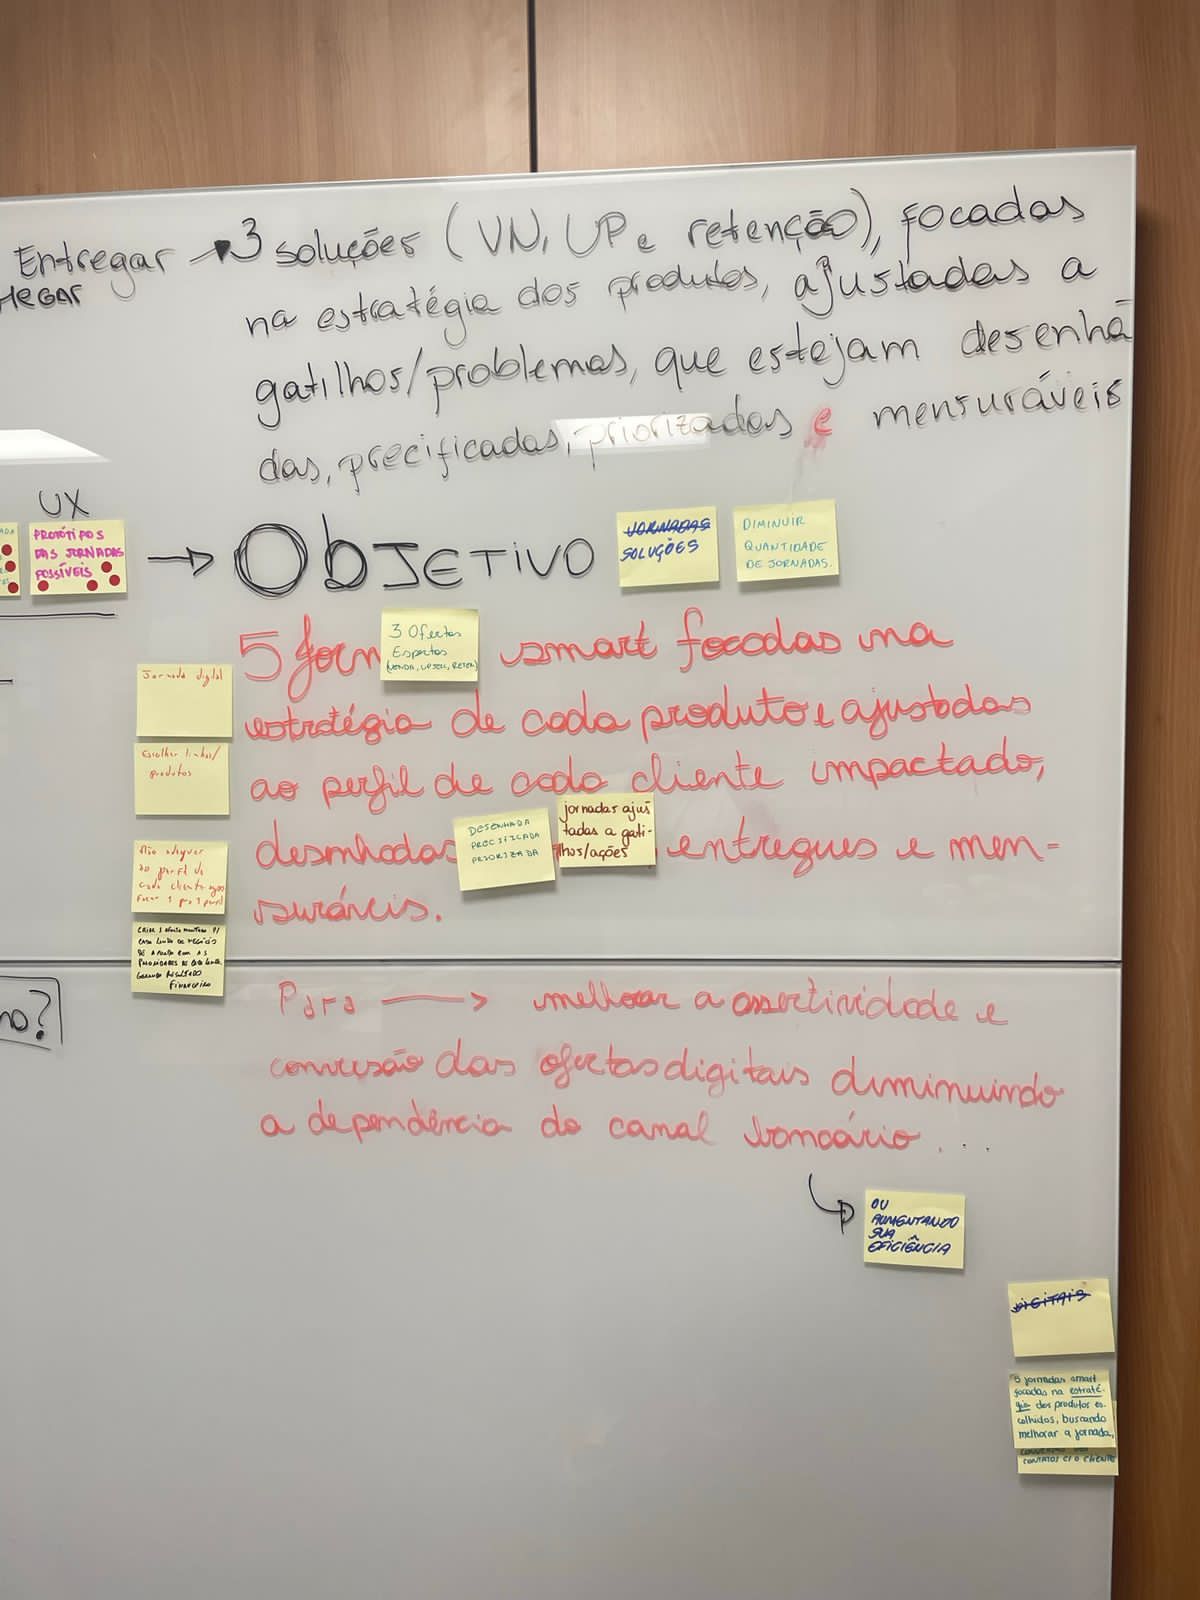 Entregar → 3 soluções (VN, UP e retenção), focadas
HEGAR
na estratégia dos produtos, ajustadas a
gatilhos/problemas, que estejam desenha
das, precificadas, priorizadas e mensuráveis
UX
PROTÓTIPOS
DAS JORNADAS
POSSÍVEIS
→ OBJETIVO
JORNADAS
SOLUÇÕES
DIMINUIR
QUANTIDADE
DE JORNADAS.
5 Jorn smart focadas na
3 Ofertas
Espertas
(VENDA, UPSELL, RETEN)
estratégia de cada produto e ajustadas
ao perfil de cada cliente impactado,
desenhadas entregues e men-
DESENHADA
PRECIFICADA
PRIORIZADA
jornadas ajus
tadas a gati-
lhos/ações
suráveis.
Jornada digital
Escolher linhas/
produtos
Não adequar
ao perfil de
cada cliente
CRIAR 1
CADA LINHA DE NEGÓCIO
DE ACORDO COM AS
PRIORIDADES DE CADA
GERANDO RESULTADO
FINANCEIRO
no?
Para → melhorar a assertividade e
conversão das ofertas digitais diminuindo
a dependência do canal bancário...
OU
AUMENTANDO
SUA
EFICIÊNCIA
DIGITAIS
jornadas smart
focadas na estraté-
gia dos produtos es-
colhidos, buscando
melhorar a jornada,
CONTATOS C/ O CLIENTE